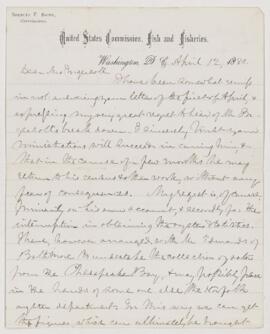 Spencer F. Baird,
Commissioner.
United States Commission, Fish and Fisheries,
Washington, D.C. April 12, 1880.
Dear Mrs Ingersoll:
I have been somewhat remiss
in not answering your letter of the first of April, &
expressing my very great regret to hear of Mr. In-
gersoll's break down. I sincerely trust your
ministrations will succeed in curing him, &
that in the course of a few months he may
return to his census & other work, without any
fear of consequences. My regret is of course
primarily on his own account, & secondly for the
interruption in obtaining the oyster statistics.
I have, however arranged with Mr. Edmonds of
Baltimore to undertake the collection of data
from the Chesapeake Bay, & may possibly place
in the hands of some one else the Norfolk
oyster department. In this way we can get
the figures which can ultimately be brought